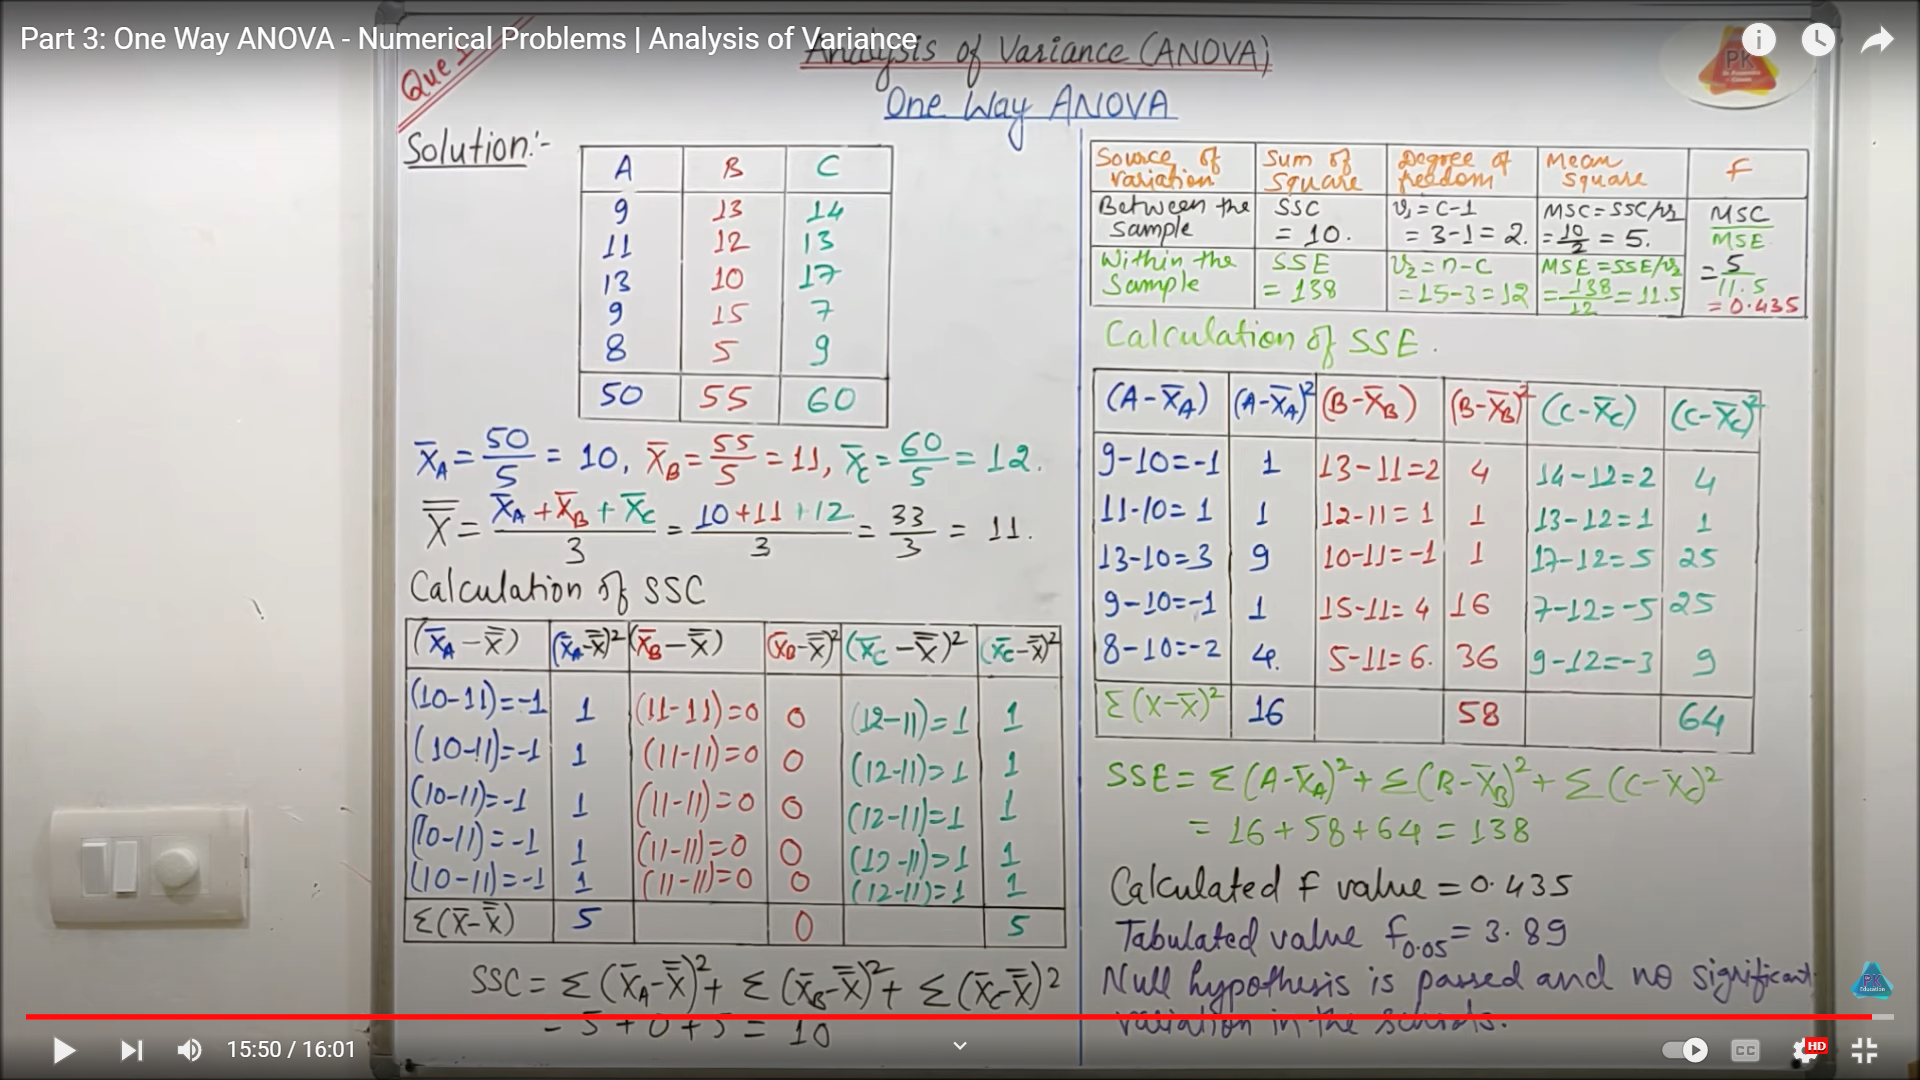 Part 3: One Way ANOVA - Numerical Problems | Analysis of Variance
Que-1
Analysis of Variance (ANOVA)
One Way ANOVA
PK
Solution:-
A B C
9 13 14
11 12 13
13 10 17
9 15 7
8 5 9
50 55 60
X̄A = 50/5 = 10, X̄B = 55/5 = 11, X̄C = 60/5 = 12.
X̿ = X̄A + X̄B + X̄C / 3 = 10+11+12 / 3 = 33/3 = 11.
Calculation of SSC
(X̄A - X̿) (X̄A-X̿)² (X̄B - X̿) (X̄B-X̿)² (X̄C - X̿)² (X̄C-X̿)²
(10-11)=-1 1 (11-11)=0 0 (12-11)=1 1
(10-11)=-1 1 (11-11)=0 0 (12-11)=1 1
(10-11)=-1 1 (11-11)=0 0 (12-11)=1 1
(10-11)=-1 1 (11-11)=0 0 (12-11)=1 1
(10-11)=-1 1 (11-11)=0 0 (12-11)=1 1
Σ(X̄-X̿) 5 0 5
SSC = Σ(X̄A-X̿)² + Σ(X̄B-X̿)² + Σ(X̄C-X̿)²
= 5+0+5 = 10
Source of variation Sum of Square Degree of freedom Mean Square F
Between the Sample SSC = 10. v₁ = C-1 = 3-1 = 2. MSC = SSC/v₁ = 10/2 = 5. MSC/MSE = 5/11.5 = 0.435
Within the Sample SSE = 138 v₂ = n-c = 15-3 = 12 MSE = SSE/v₂ = 138/12 = 11.5
Calculation of SSE.
(A-X̄A) (A-X̄A)² (B-X̄B) (B-X̄B)² (C-X̄C) (C-X̄C)²
9-10=-1 1 13-11=2 4 14-12=2 4
11-10=1 1 12-11=1 1 13-12=1 1
13-10=3 9 10-11=-1 1 17-12=5 25
9-10=-1 1 15-11=4 16 7-12=-5 25
8-10=-2 4. 5-11=6. 36 9-12=-3 9
Σ(X-X̄)² 16 58 64
SSE = Σ(A-X̄A)² + Σ(B-X̄B)² + Σ(C-X̄C)²
= 16+58+64 = 138
Calculated F value = 0.435
Tabulated value f0.05 = 3.89
Null hypothesis is passed and no significant
variation in the schools.
PK
Education
15:50 / 16:01
CC
HD